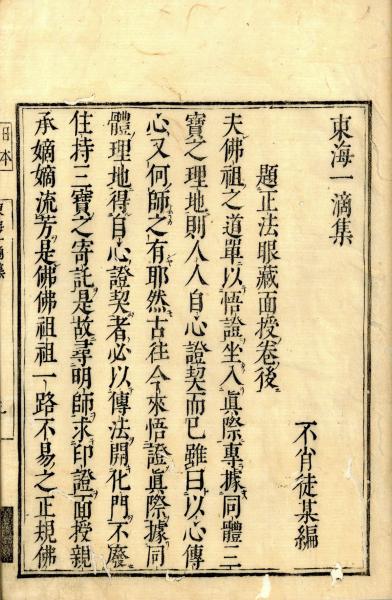 東海一滴集
不肖徒某編
題正法眼藏面授卷後
夫佛祖之道單以悟證坐入眞際專據同體三
寶之理地則人人自心證契而已雖曰以心傳
心又何師之有耶然古往今來悟證眞際據同
體理地得自心證契者必以傳法開化門不廢
住持三寶之寄託是故尋明師求印證面授親
承嫡嫡流芳是佛佛祖祖一路不易之正規佛
日本
東海一滴集